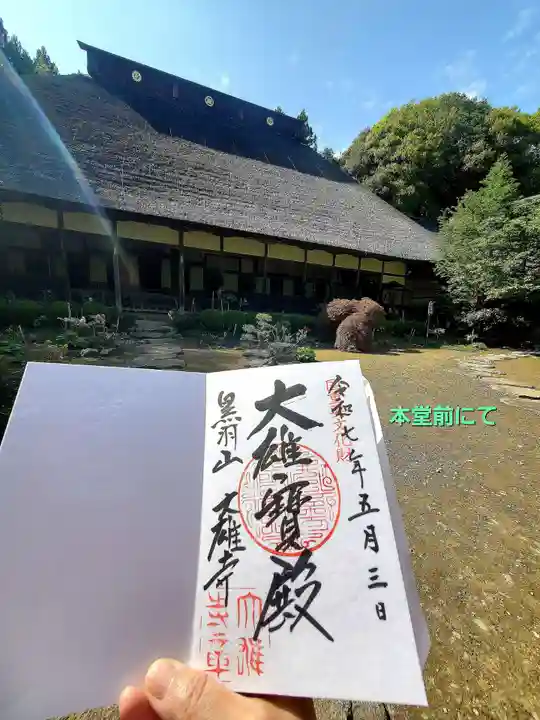 本堂前にて
令和七年五月三日
文化財
大雄寳殿
黒羽山 大雄寺